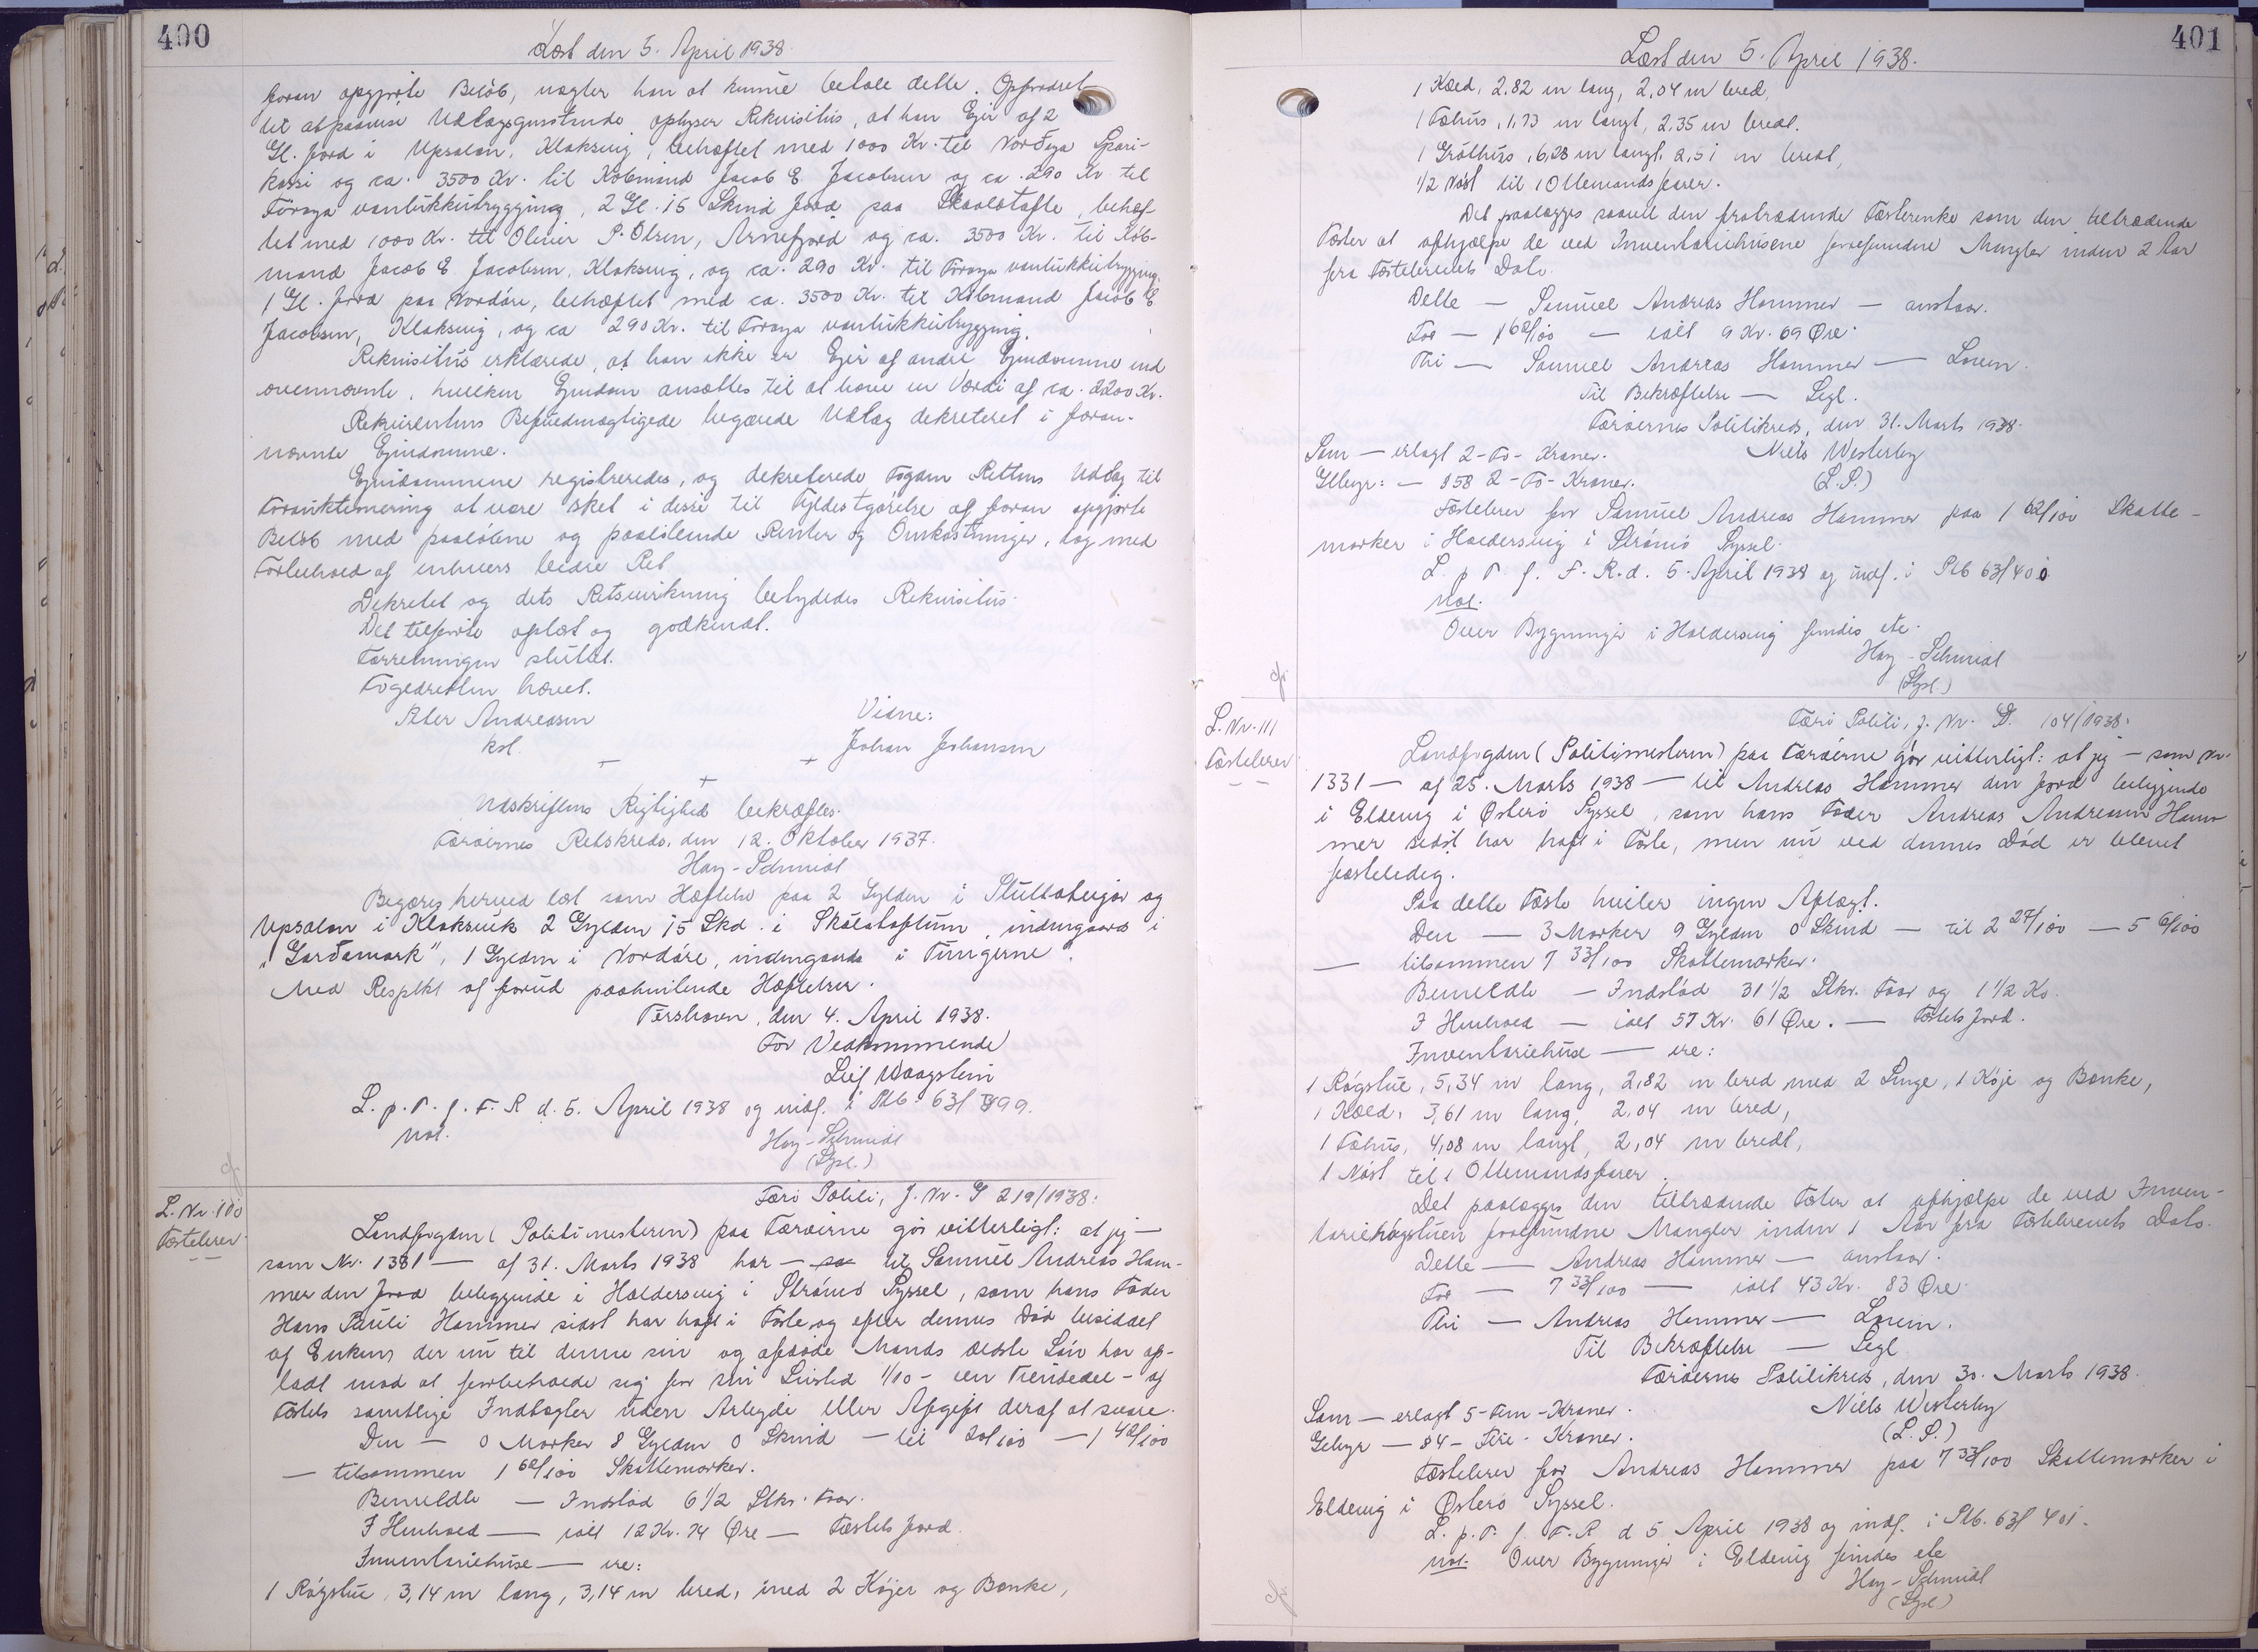 400
Læst den 5. April 1938.
foran opgjorte Beløb, nægter han at kunne betale dette. Opfordret
til at paavise Udlægsgenstande oplyser Rekvisitus, at han Ejer af 2
Gl. Jord i Upsalan, Klaksvig, behæftet med 1000 Kr. til Norðoya Spari-
kassi og ca. 3500 Kr. til Købmand Jacob E. Jacobsen og ca. 290 Kr til
Föroya vanlukkutrygging, 2 Gl. 15 Skind Jord paa Skaalatofte, behæf-
tet med 1000 Kr. til Oliver P. Olsen, Arnefjord og ca. 3500 Kr. til Køb-
mand Jacob E Jacobsen, Klaksvig, og ca. 290 Kr. til Föroya vanlukkutrygging.
1 Gl. Jord paa Nordøre, behæftet med ca. 3500 Kr. til Købmand Jacob E
Jacobsen, Klaksvig, og ca 290 Kr. til Föroya vanlukkutrygging.
Rekvisitus erklærede, at han ikke er Ejer af andre Ejendomme end
ovennævnte, hvilken Ejendom ansættes til at have en Værdi af ca. 2200 Kr.
Rekvirentens Befuldmægtigede begærede Udlæg dekreteret i foran-
nævnte Ejendomme.
Ejendommene registreredes, og dekreterede Fogden Rettens Udlæg til
Forauktionering at være sket i disse til Fyldestgørelse af foran opgjorte
Beløb med paaløbne og paaløbende Renter og Omkostninger, dog med
Forbehold af enhvers bedre Ret
Dekretet og dets Retsvirkning betydedes Rekvisitus.
Det tilførte oplæst og godkendt.
Forretningen sluttet.
Fogedretten hævet.
Peter Andreasen
kst.
Vidne:
Johan Johansen
Udskriftens Rigtighed bekræftes.
Færøernes Retskreds, den 12. Oktober 1937.
Hay-Schmidt
Begæres herved læst som Hæftelse paa 2 Gylden i og
Upsalan i Klaksvik 2 Gylden 15 Skd. i Skálatoftum, indengaards i
„Garðamark", 1 Gylden i Nordøre, indengaards i Tungerne".
Med Respekt af forud paahvilende Hæftelser.
Torshavn, den 4. April 1938.
For Vedkommende
Leif Waagstein
L. p. T. f. F. R d. 5. April 1938 og indf. i Ptb. 63f 399.
not.
Hay-Schmidt
(Spl.)
L. Nr. 110
Fæstebrev
Færø Politi, J. Nr. G 219/1938:
Landfogden (Politimesteren) paa Færøerne gør vitterligt: at jeg —
som Nr. 1381 — af 31. Marts 1938 har — til Samuel Andreas Ham-
mer den Jord beliggende i Haldersvig i Strømø Syssel, som hans Fader
Hans Pauli Hammer sidst har haft i Fæste og efter dennes Død besiddet
af Enken, der nu til denne sin og afdøde Mands ældste Søn har op-
ladt mod at forbeholde sig for sin Livstid 1/10 - een Tiendedel - af
Fæstets samtlige Indtægter uden Arbejde eller Afgift deraf at svare.
Den — 0 Marker 8 Gylden 0 Skind — til 20/100 — 1 42/100
— tilsammen 1 62/100 Skattemarker.
Bemeldte — Indstød 6 1/2 Stkr. Faar.
I Henhold — ialt 12 Kr. 74 Øre — Fæstets Jord.
Inventariehuse — ere:
1 Røgstue, 3,14 m lang, 3,14 m bred, med 2 Køjer og Bænke,
401
Læst den 5. April 1938.
1 Kæld, 2,82 m lang, 2,04 m bred,
1 Fæhus, 1,73 m langt, 2,35 m bredt.
1 Gróthus, 6,28 m langt, 2,51 m bredt,
1/2 Nøst til 1 Ottemandsfarer.
Det paalægges saavel den fratrædende Fæsterenke som den tiltrædende
Fæster at afhjælpe de ved Inventariehusene forefundne Mangler inden 2 Aar
fra Fæstebrevets Dato.
Dette — Samuel Andreas Hammer — anstaar.
For — 1 62/100 — ialt 9 Kr. 69 Øre.
Thi — Samuel Andreas Hammer — Loven.
Til Bekræftelse — Segl.
Færøernes Politikreds, den 31. Marts 1938.
Som — erlagt 2 - To - Kroner.
Niels Westerby
Gebyr: — § 58 2 - To - Kroner.
(L.S.)
Fæstebrev for Samuel Andreas Hammer paa 1 62/100 Skatte-
marker i Haldersvig i Strømø Syssel.
L. p. T. f. F. R. d. 5. April 1938 og indf. i Ptb 63f 400
not.
Over Bygninger i Haldersvig findes ete.
Hay-Schmidt
(Spl.)
L. Nr. 111
Fæstebrev
Færø Politi, J. Nr. D. 104/1938:
Landfogden (Politimesteren) paa Færøerne gør vitterligt: at jeg — som Nr.
1331 — af 25. Marts 1938 — til Andreas Hammer den Jord beliggende
i Eldevig i Østerø Syssel, som hans Fader Andreas Andreasen Ham-
mer sidst har haft i Fæste, men nu ved dennes Død er blevet
fæsteledig.
Paa dette Fæste hviler ingen Aftægt.
Den — 3 Marker 9 Gylden 0 Skind — til 2 27/100 — 5 6/100
— tilsammen 7 33/100 Skattemarker.
Bemeldte — Indstød 31 1/2 Stkr. Faar og 1 1/2 Ko.
I Henhold — ialt 57 Kr. 61 Øre. — Fæstets Jord.
Inventariehuse — ere:
1 Røgstue, 5,34 m lang, 2,82 m bred med 2 Senge, 1 Køje og Bænke,
1 Kæld, 3,61 m lang, 2,04 m bred,
1 Fæhus, 4,08 m langt, 2,04 m bredt,
1 Nøst til 1 Ottemandsfarer.
Det paalægges den tiltrædende Fæster at afhjælpe de ved Inven-
tarierøgstuen forefundne Mangler inden 1 Aar fra Fæstebrevets Dato.
Dette — Andreas Hammer — anstaar.
For — 7 33/100 — ialt 43 Kr. 83 Øre.
Thi — Andreas Hammer — Loven.
Til Bekræftelse — Segl
Færøernes Politikreds, den 30. Marts 1938.
Som — erlagt 5 - Fem - Kroner.
Niels Westerby
Gebyr — § 4 - Fire - Kroner.
(L.S.)
Fæstebrev for Andreas Hammer paa 7 33/100 Skattemarker i
Eldevig i Østerø Syssel.
L. p. T. f. F. R d 5 April 1938 og indf. i Ptb. 63f 401.
not. Over Bygninger i Eldevig findes ete
Hay-Schmidt
(Spl.)